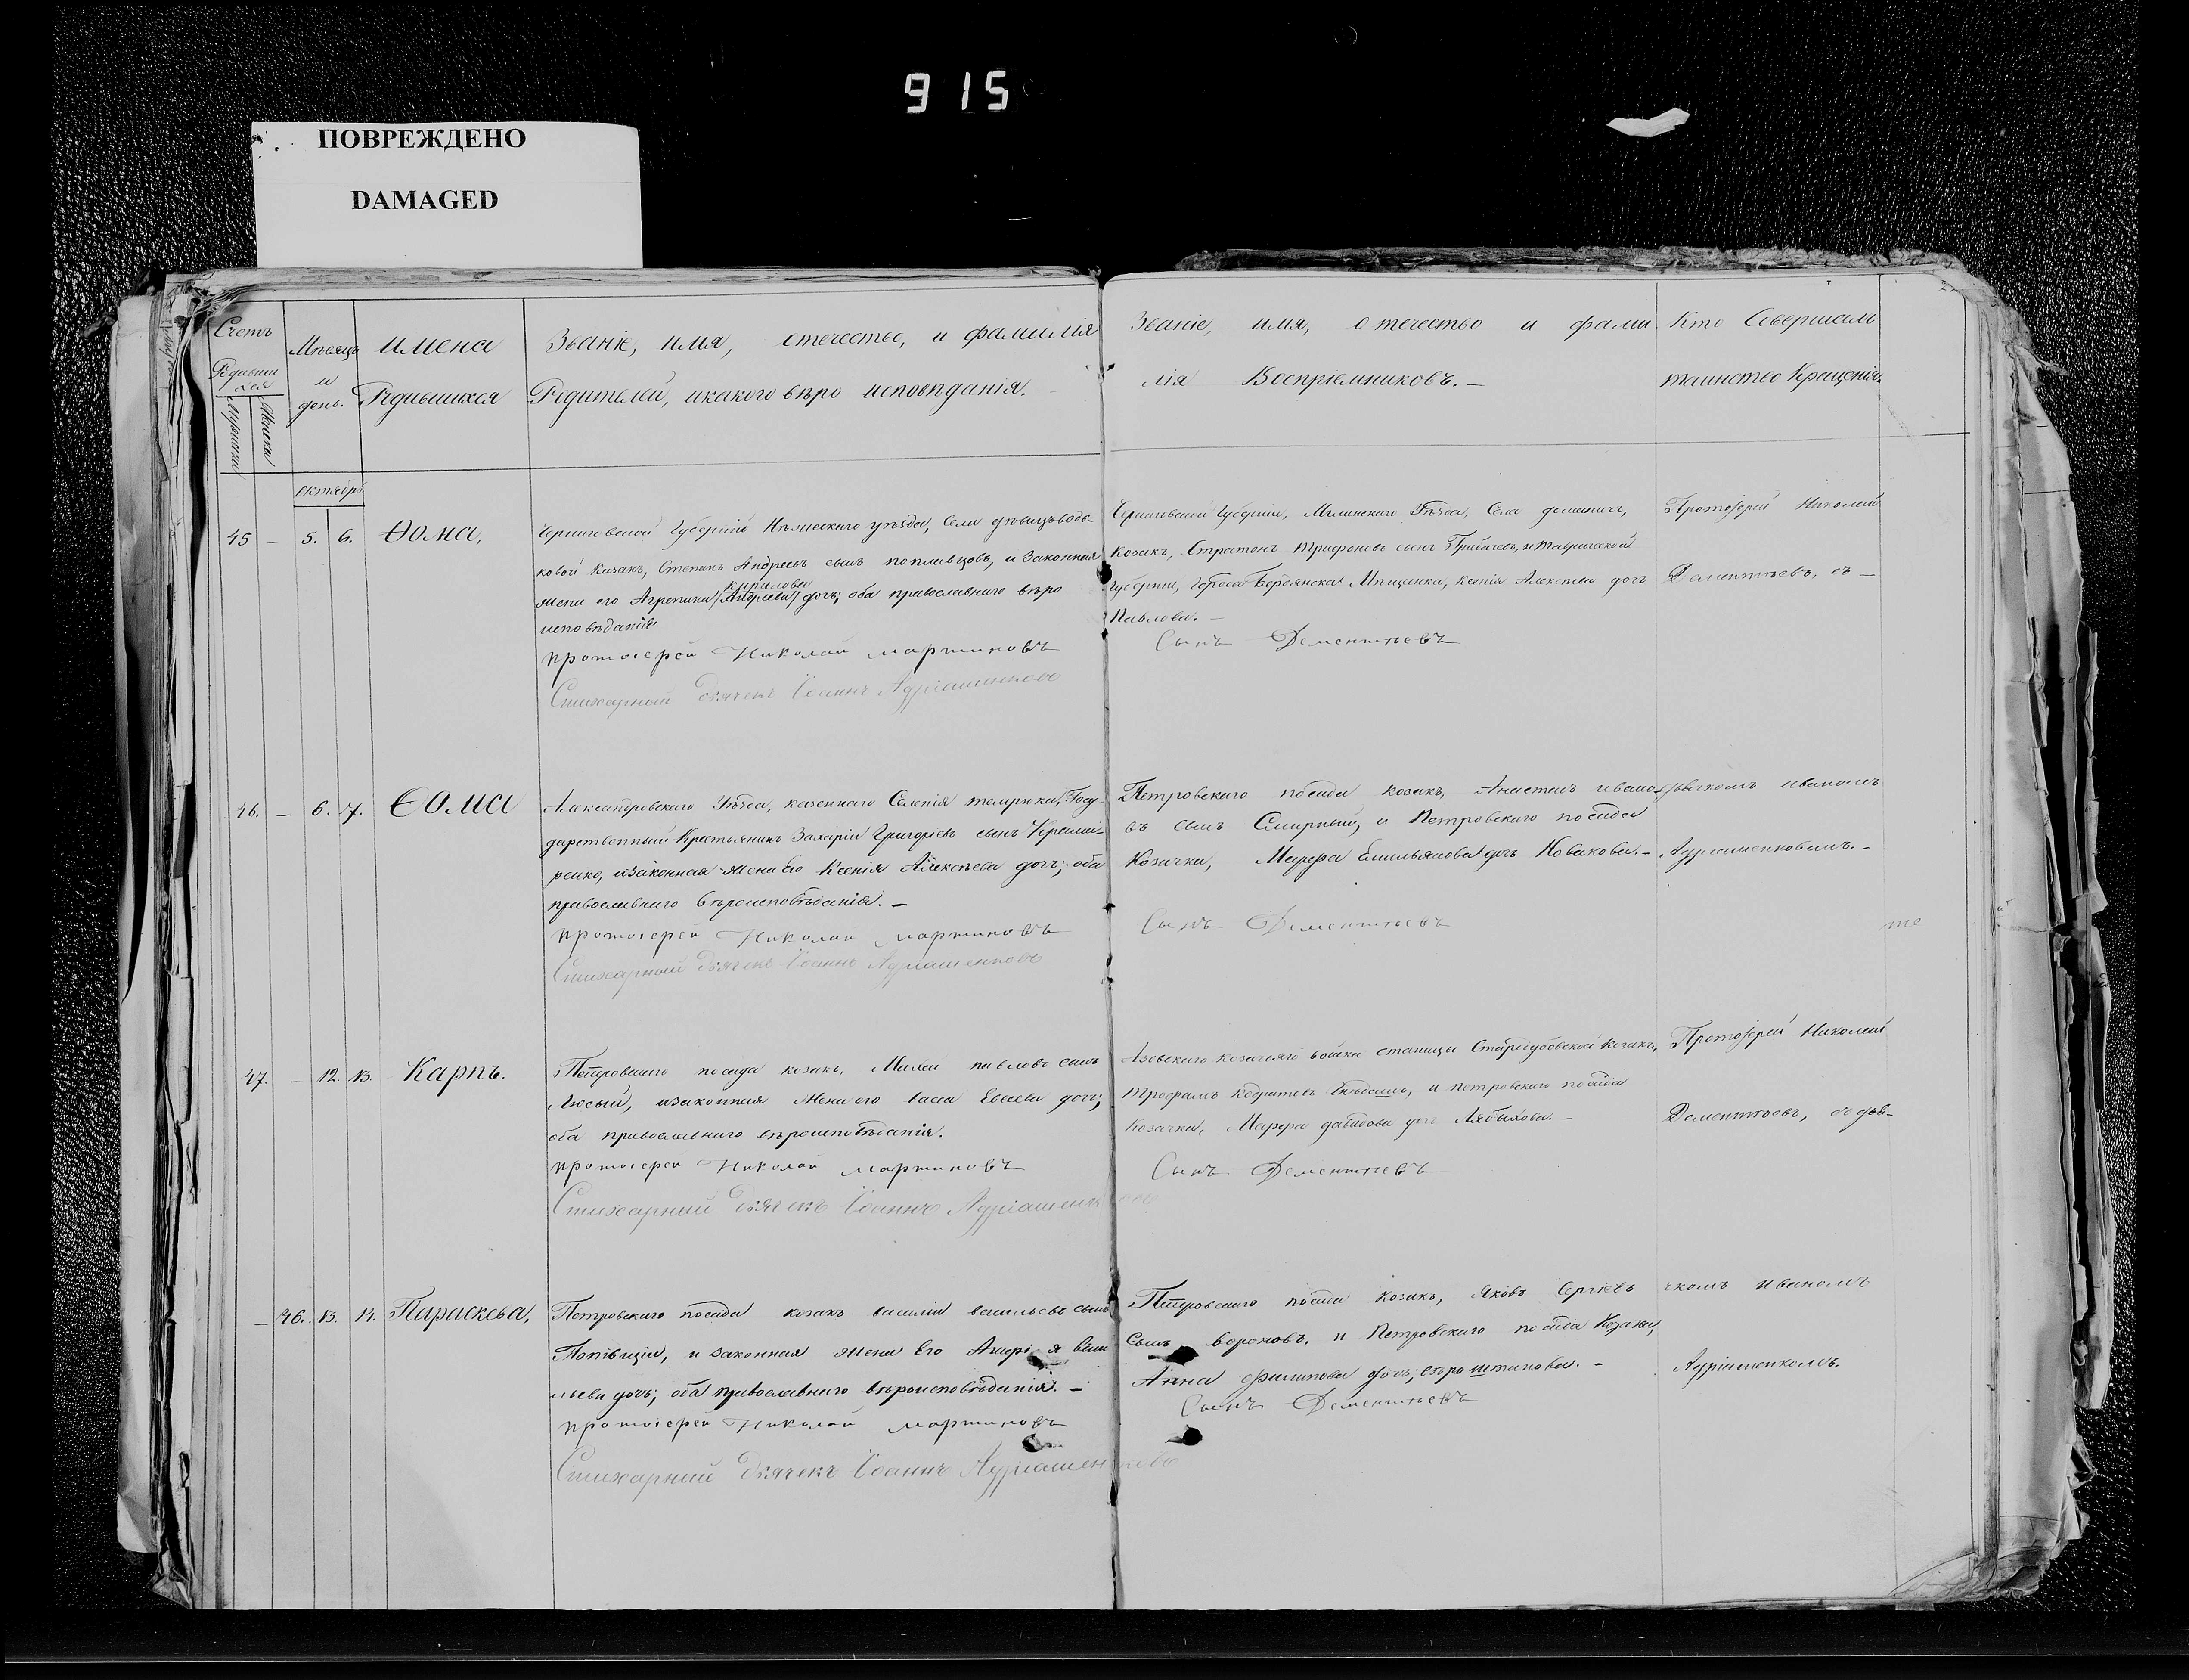 915
ПОВРЕЖДЕНО
DAMAGED
Счетъ
Родивши
хся
Мужеска
Женска
Мѣсяцъ
и
день.
имена
Родившихся
Званіе, имя, отечество, и фамилія
Родителей, и какого вѣро исповѣданія.
Званіе, имя, отечество и фами
лія Воспріемниковъ. —
Кто Совершалъ
таинство Крещенія.
октябрь
45 — 5. 6. Ѳома,
Черниговской Губерніи Нѣжнскаго уѣзда, Села
ковой Козакъ, Степанъ Андреевъ сынъ и Законная
кирилова
жена его Агрепина /Андреева/ дочь; оба православнаго вѣро
исповѣданія
протоіерей Николай мартиновъ
Стихарный дьячекъ Іоаннъ Адріашенково
Черниговской Губерніи, Мглинскаго Уѣзда, Села
козакъ, Стратонъ Трифоновъ сынъ и таврической
Губерніи, Города Бердянска Мѣщанка, Ксенія Алексѣева дочь
Павлова. —
Сынъ Дементтьевъ
Протоіерей Николай
Дементтьевъ, съ —
46. — 6. 7. Ѳома
Александровскаго Уѣзда, казеннаго Селенія темрюка, Госу-
дарственный Крестьянинъ Захарія Григорьевъ сынъ
ренко, изаконная жена Его Ксенія Алексѣева дочь; оба
православнаго вѣроисповѣданія. —
протоіерей Николай мартиновъ
Стихарный дьячекъ Іоаннъ Адріашенково
Петровскаго посада козакъ, ивано-
въ сынъ Смирный, и Петровскаго посада
Козачка, Марфа Емильянова дочь Новакова. —
Сынъ Дементтьевъ
дьячкомъ иваномъ
Адріашенковымъ. —
те
47. — 12. 13. Карпъ.
Петровскаго посада козакъ, павлово сынъ
Лысый, изаконная Жена его васса Евсеева дочь;
оба православнаго вѣроисповѣданія.
протоіерей Николай мартиновъ
Стихарный дьячекъ Іоаннъ Адріашенково
Азовскаго козачьяго войска станицы Стародубовской Козакъ,
трофимъ и петровскаго посада
Козачка, Марфа давидова дочь
Сынъ Дементтьевъ
Протоіерей Николай
Дементтьевъ, съ дья-
— 46. 13. 14. Параскева,
Петровскаго посада козакъ василій васильевъ сынъ
и законная жена Его васи
льева дочь; оба православнаго вѣроисповѣданія. —
протоіерей Николай мартиновъ
Стихарный дьячекъ Іоаннъ Адріашенково
Петровскаго посада козакъ, Яковъ Сергіевъ
Сынъ вороновъ. и Петровскаго посада Козачка,
Анна филипова дочь;
Сынъ Дементтьевъ
чкомъ иваномъ
Адріашенкомъ.